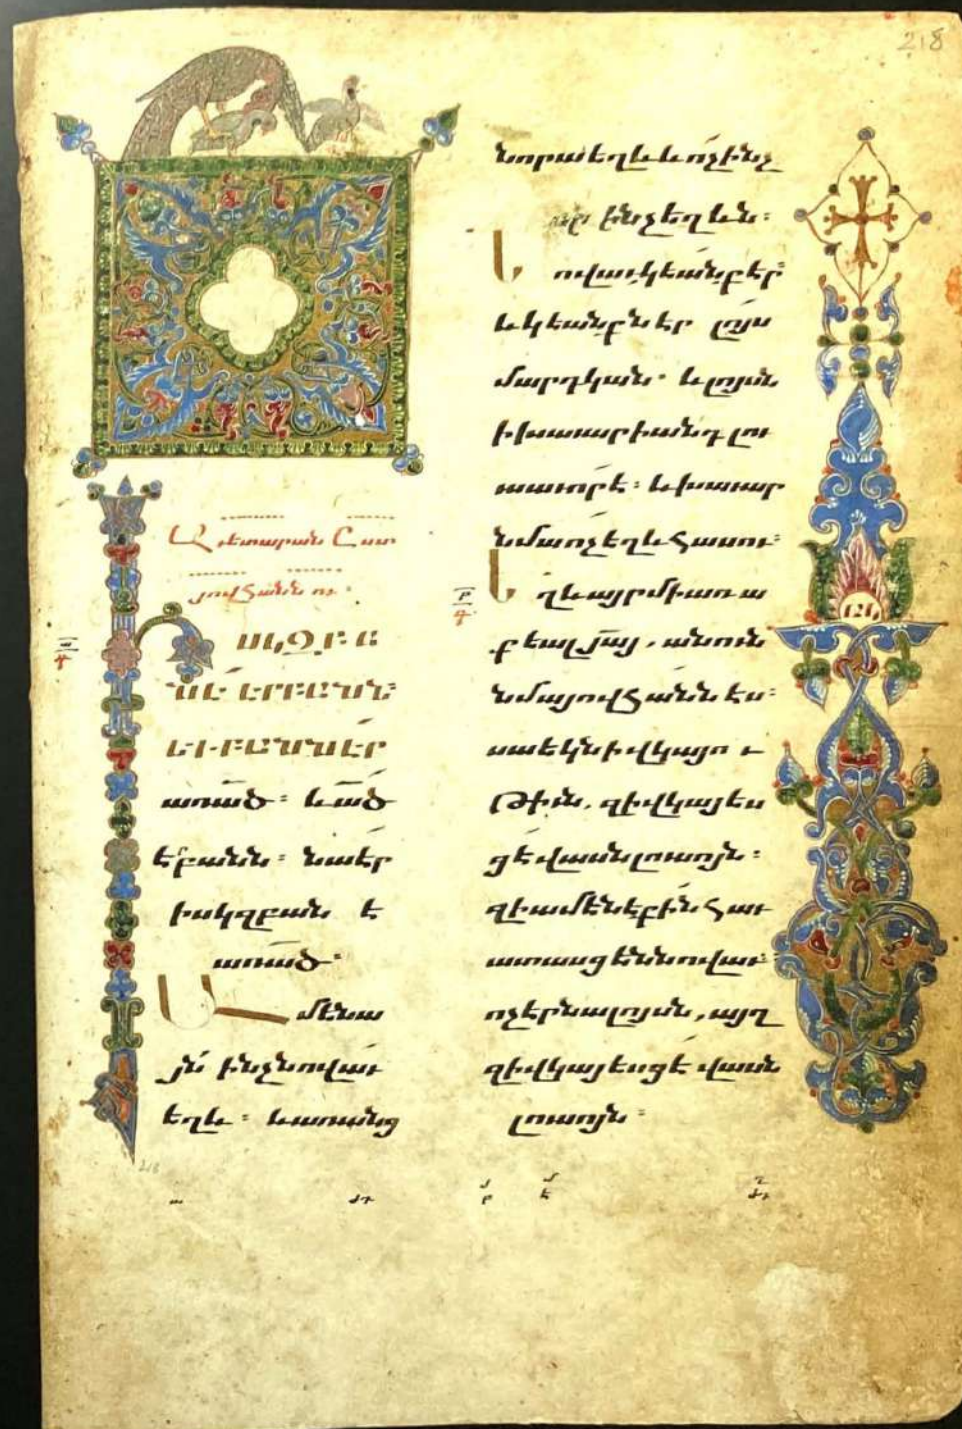 218
Աւետարան Ըստ
յովհաննու։
Ի ՍԿԶԲԱ
ՆԷ ԷՐԲԱՆՆ՝
ԵՒԲԱՆՆԷՐ
առած՝ և ած
էբանն։ նաէր
իսկզբան է
առած՝
Ամենա
յն ինչնովաւ
եղև։ և առանց
նորա եղև և ոչինչ
որ ինչ եղևն։
Նովաւ կեանք էր՝
և կեանքն էր լոյս
մարդկան։ և լոյսն
ի խաւարի անդ լու
սաւորէ։ և խաւար
նմա ոչ եղև հասու։
Եղև այր մի առա
քեալ յայ, անուն
նմա յովհաննէս։
սա եկն ի վկայու
թիւն. զի վկայես
ցէ վասն լուսոյն։
զի ամենեքին հաւ
ատասցեն նովաւ։
ոչ էր նա լոյսն, այղ
զի վկայեսցէ վասն
լուսոյն։
218